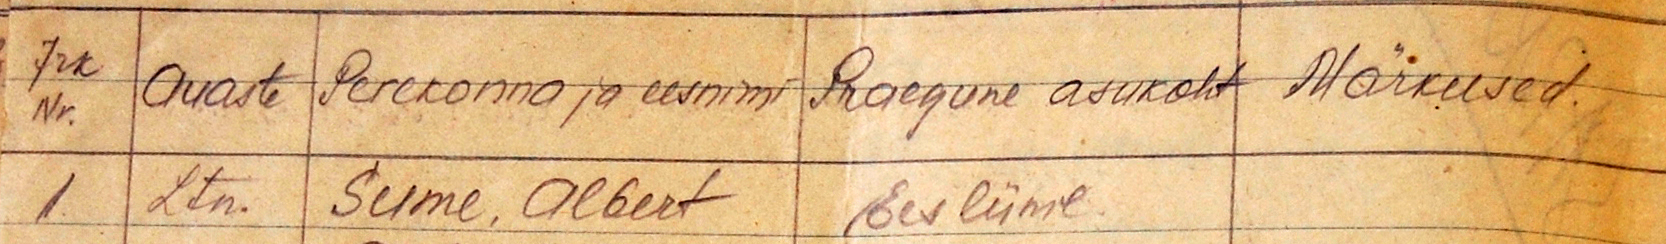 Jrk Auaste Perekonna ja eesnimi Praegune asukoht Märkused.
Nr.
1 Ltn. Sume, Albert Eesliinil